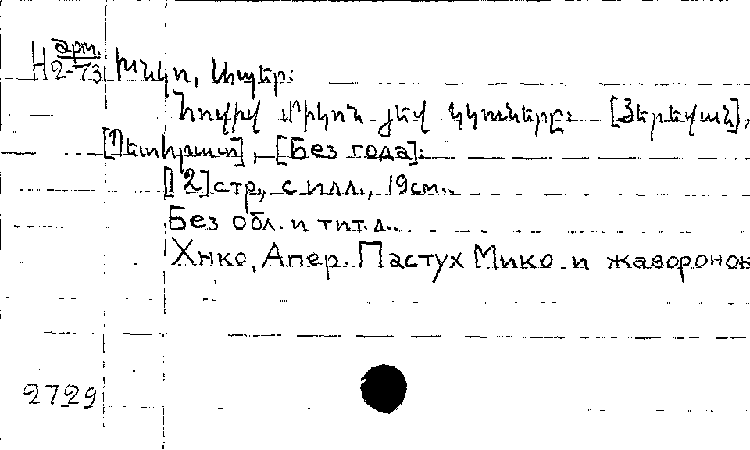 Н арм. 2-73 Խնկո, Ապեր:
Հովիվ Միկոն յեվ կկուները: [Յերեվան],
[Պետհրատ], [Без года].
[12] стр., с илл., 19см..
Без обл. и тит.л..
Хнко, Апер. Пастух Мико и жаворонок
2729